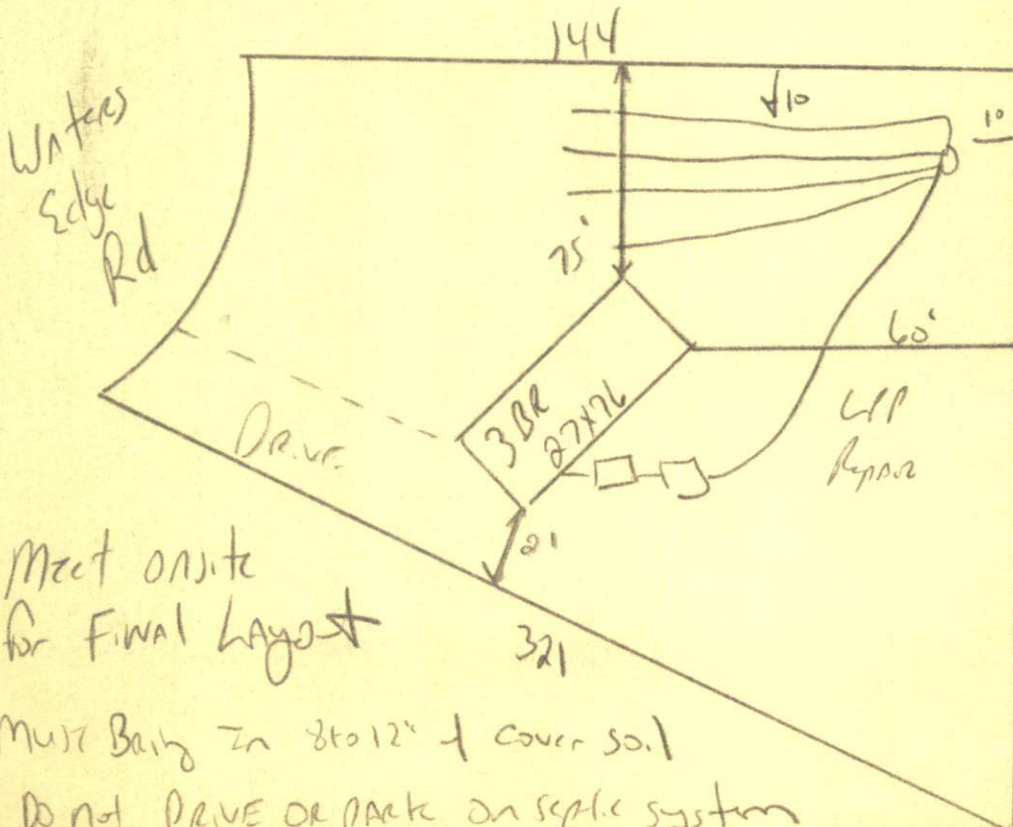 144
10
10
Waters
Edge
Rd
75'
60'
3 BR
27x76
LPP
Repair
Drive
21
Meet onsite
for Final Layout
321
Must Bring In 8 to 12" of cover soil
Do not DRIVE OR PARK on septic system